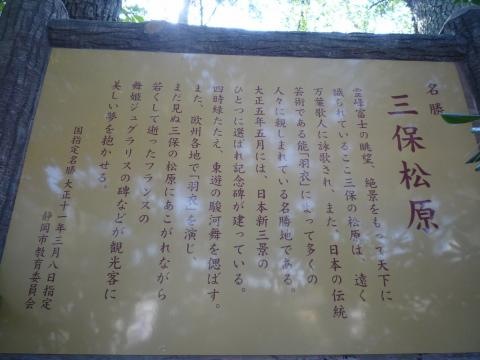 名勝
三保松原
霊峰富士の眺望、絶景をもって天下に
識られているここ三保の松原は、遠く
万葉歌人に詠歌され、また、日本の伝統
芸術である能「羽衣」によって多くの
人々に親しまれている名勝地である。
大正五年五月には、日本新三景の
ひとつに選ばれ記念碑が建っている。
四時緑たたえ、東遊の駿河舞を偲ばす。
また、欧州各地で「羽衣」を演じ
まだ見ぬ三保の松原にあこがれながら
若くして逝ったフランスの
舞姫ジュグラリスの碑などが観光客に
美しい夢を抱かせる。
国指定名勝 大正十一年三月八日指定
静岡市教育委員会